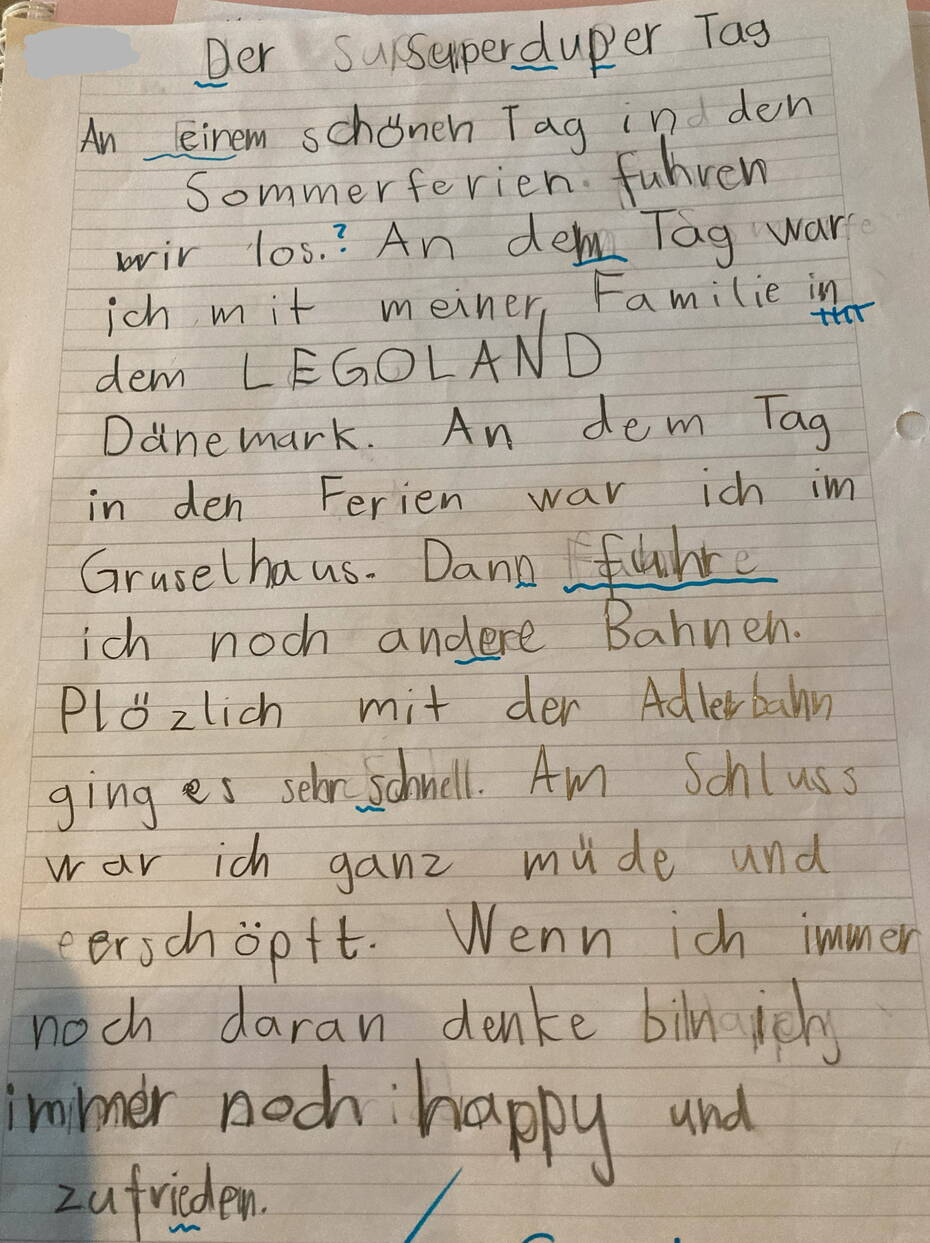 Der Superduper Tag
An einem schönen Tag in den
Sommerferien fuhren
wir los.? An dem Tag war
ich mit meiner Familie in
dem LEGOLAND
Dänemark. An dem Tag
in den Ferien war ich im
Gruselhaus. Dann fuhr
ich noch andere Bahnen.
Plözlich mit der Adlerbahn
ging es sehr schnell. Am Schluss
war ich ganz müde und
erschöpft. Wenn ich immer
noch daran denke bin ich
immer noch happy und
zufrieden.